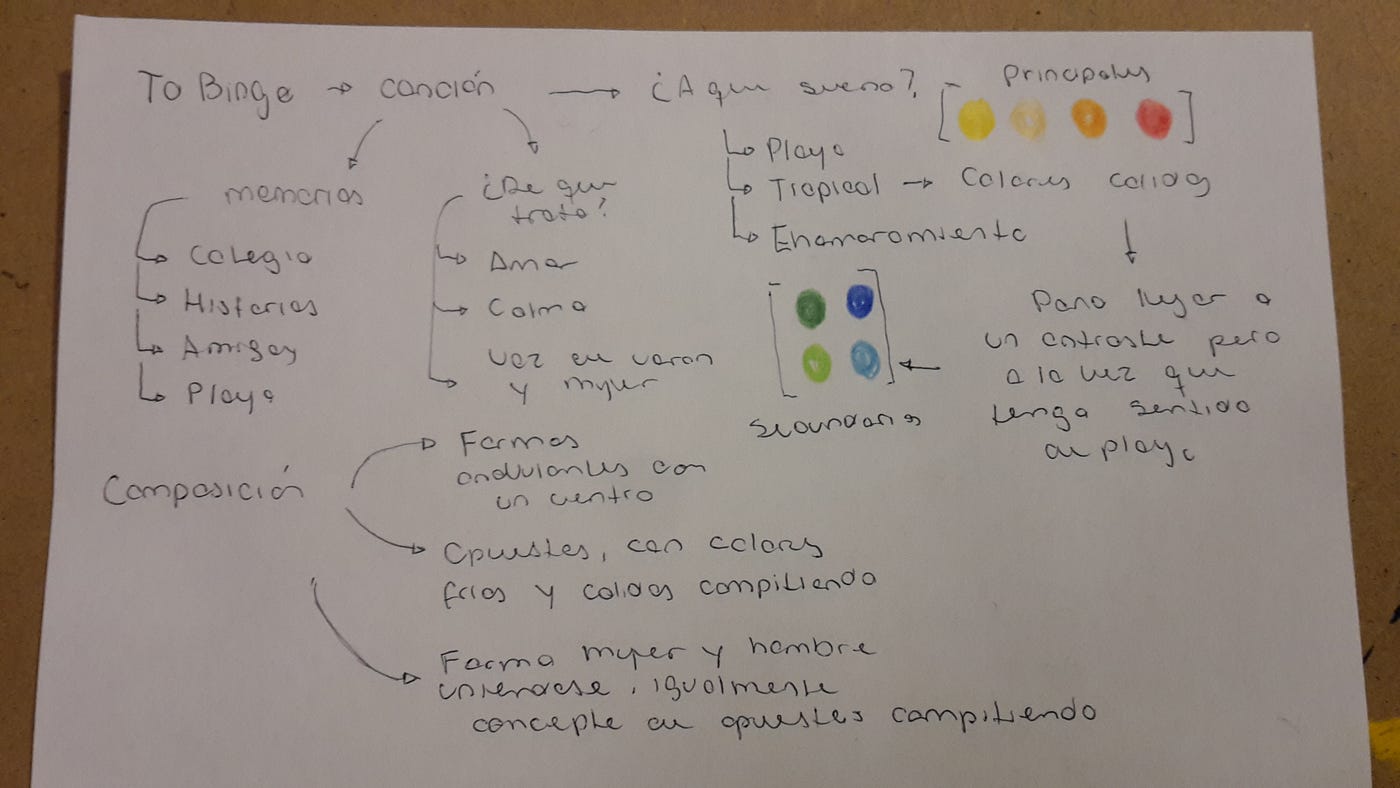 To Binge → canción → ¿A que suena?
Principales
memorias
Colegio
Historias
Amigos
Playa
¿De que
trata?
Amor
Calma
Voz de varon
y mujer
Playa
Tropical → Colores calidos
Enamoramiento
Para lugar a
un contraste pero
a la vez que
tenga sentido
de playa
secundarios
Composición
Formas
ondulantes con
un centro
Opuestos, con colores
frios y calidos compitiendo
Forma mujer y hombre
uniendose, igualmente
concepto de opuestos compitiendo